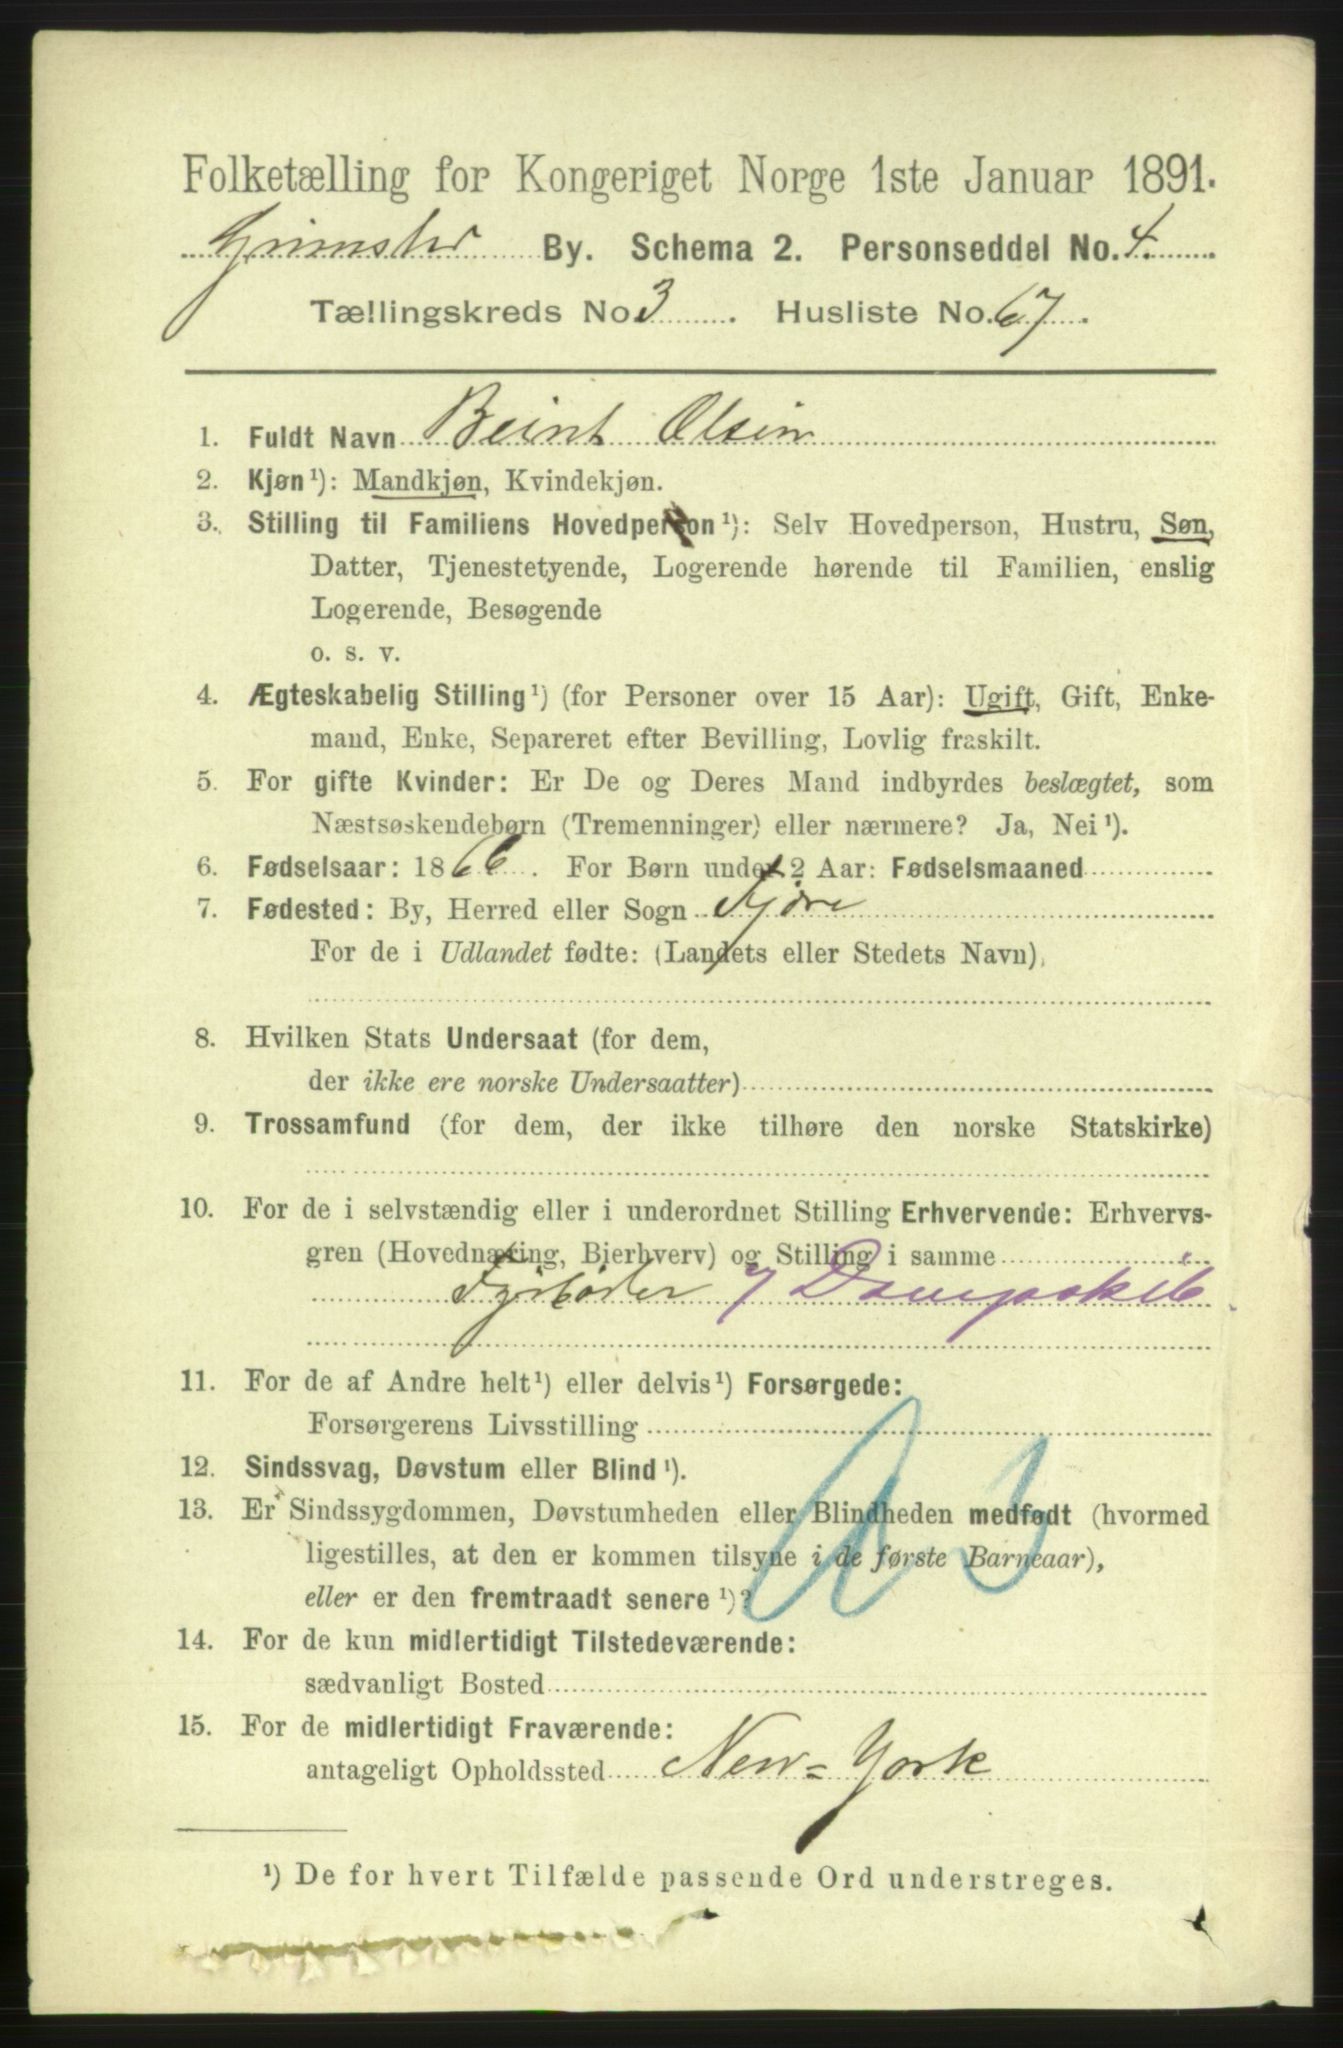 Folketælling for Kongeriget Norge 1ste Januar 1891.
Grimstad By. Schema 2. Personseddel No. 4.
Tællingskreds No. 3. Husliste No. 67.
1. Fuldt Navn Beint Olsen
2. Kjøn ¹): Mandkjøn, Kvindekjøn.
3. Stilling til Familiens Hovedperson ¹): Selv Hovedperson, Hustru, Søn,
Datter, Tjenestetyende, Logerende hørende til Familien, enslig
Logerende, Besøgende
o. s. v.
4. Ægteskabelig Stilling ¹) (for Personer over 15 Aar): Ugift, Gift, Enke-
mand, Enke, Separeret efter Bevilling, Lovlig fraskilt.
5. For gifte Kvinder: Er De og Deres Mand indbyrdes beslægtet, som
Næstsøskendebørn (Tremenninger) eller nærmere? Ja, Nei ¹).
6. Fødselsaar: 1866. For Børn under 2 Aar: Fødselsmaaned
7. Fødested: By, Herred eller Sogn Fjære
For de i Udlandet fødte: (Landets eller Stedets Navn)
8. Hvilken Stats Undersaat (for dem,
der ikke ere norske Undersaatter)
9. Trossamfund (for dem, der ikke tilhøre den norske Statskirke)
10. For de i selvstændig eller i underordnet Stilling Erhvervende: Erhvervs-
gren (Hovednæring, Bierhverv) og Stilling i samme
Fyrbøder / Dampskib
11. For de af Andre helt ¹) eller delvis ¹) Forsørgede:
Forsørgerens Livsstilling
12. Sindssvag, Døvstum eller Blind ¹).
13. Er Sindssygdommen, Døvstumheden eller Blindheden medfødt (hvormed
ligestilles, at den er kommen tilsyne i de første Barneaar),
eller er den fremtraadt senere ¹)?
14. For de kun midlertidigt Tilstedeværende:
sædvanligt Bosted
15. For de midlertidigt Fraværende:
antageligt Opholdssted New=York
¹) De for hvert Tilfælde passende Ord understreges.